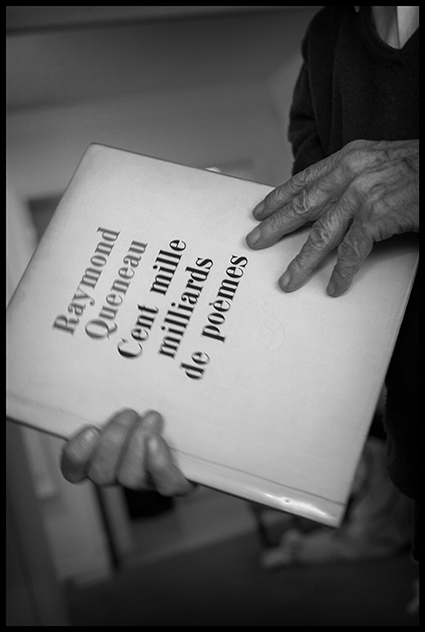 Raymond
Queneau
Cent mille
milliards
de poèmes